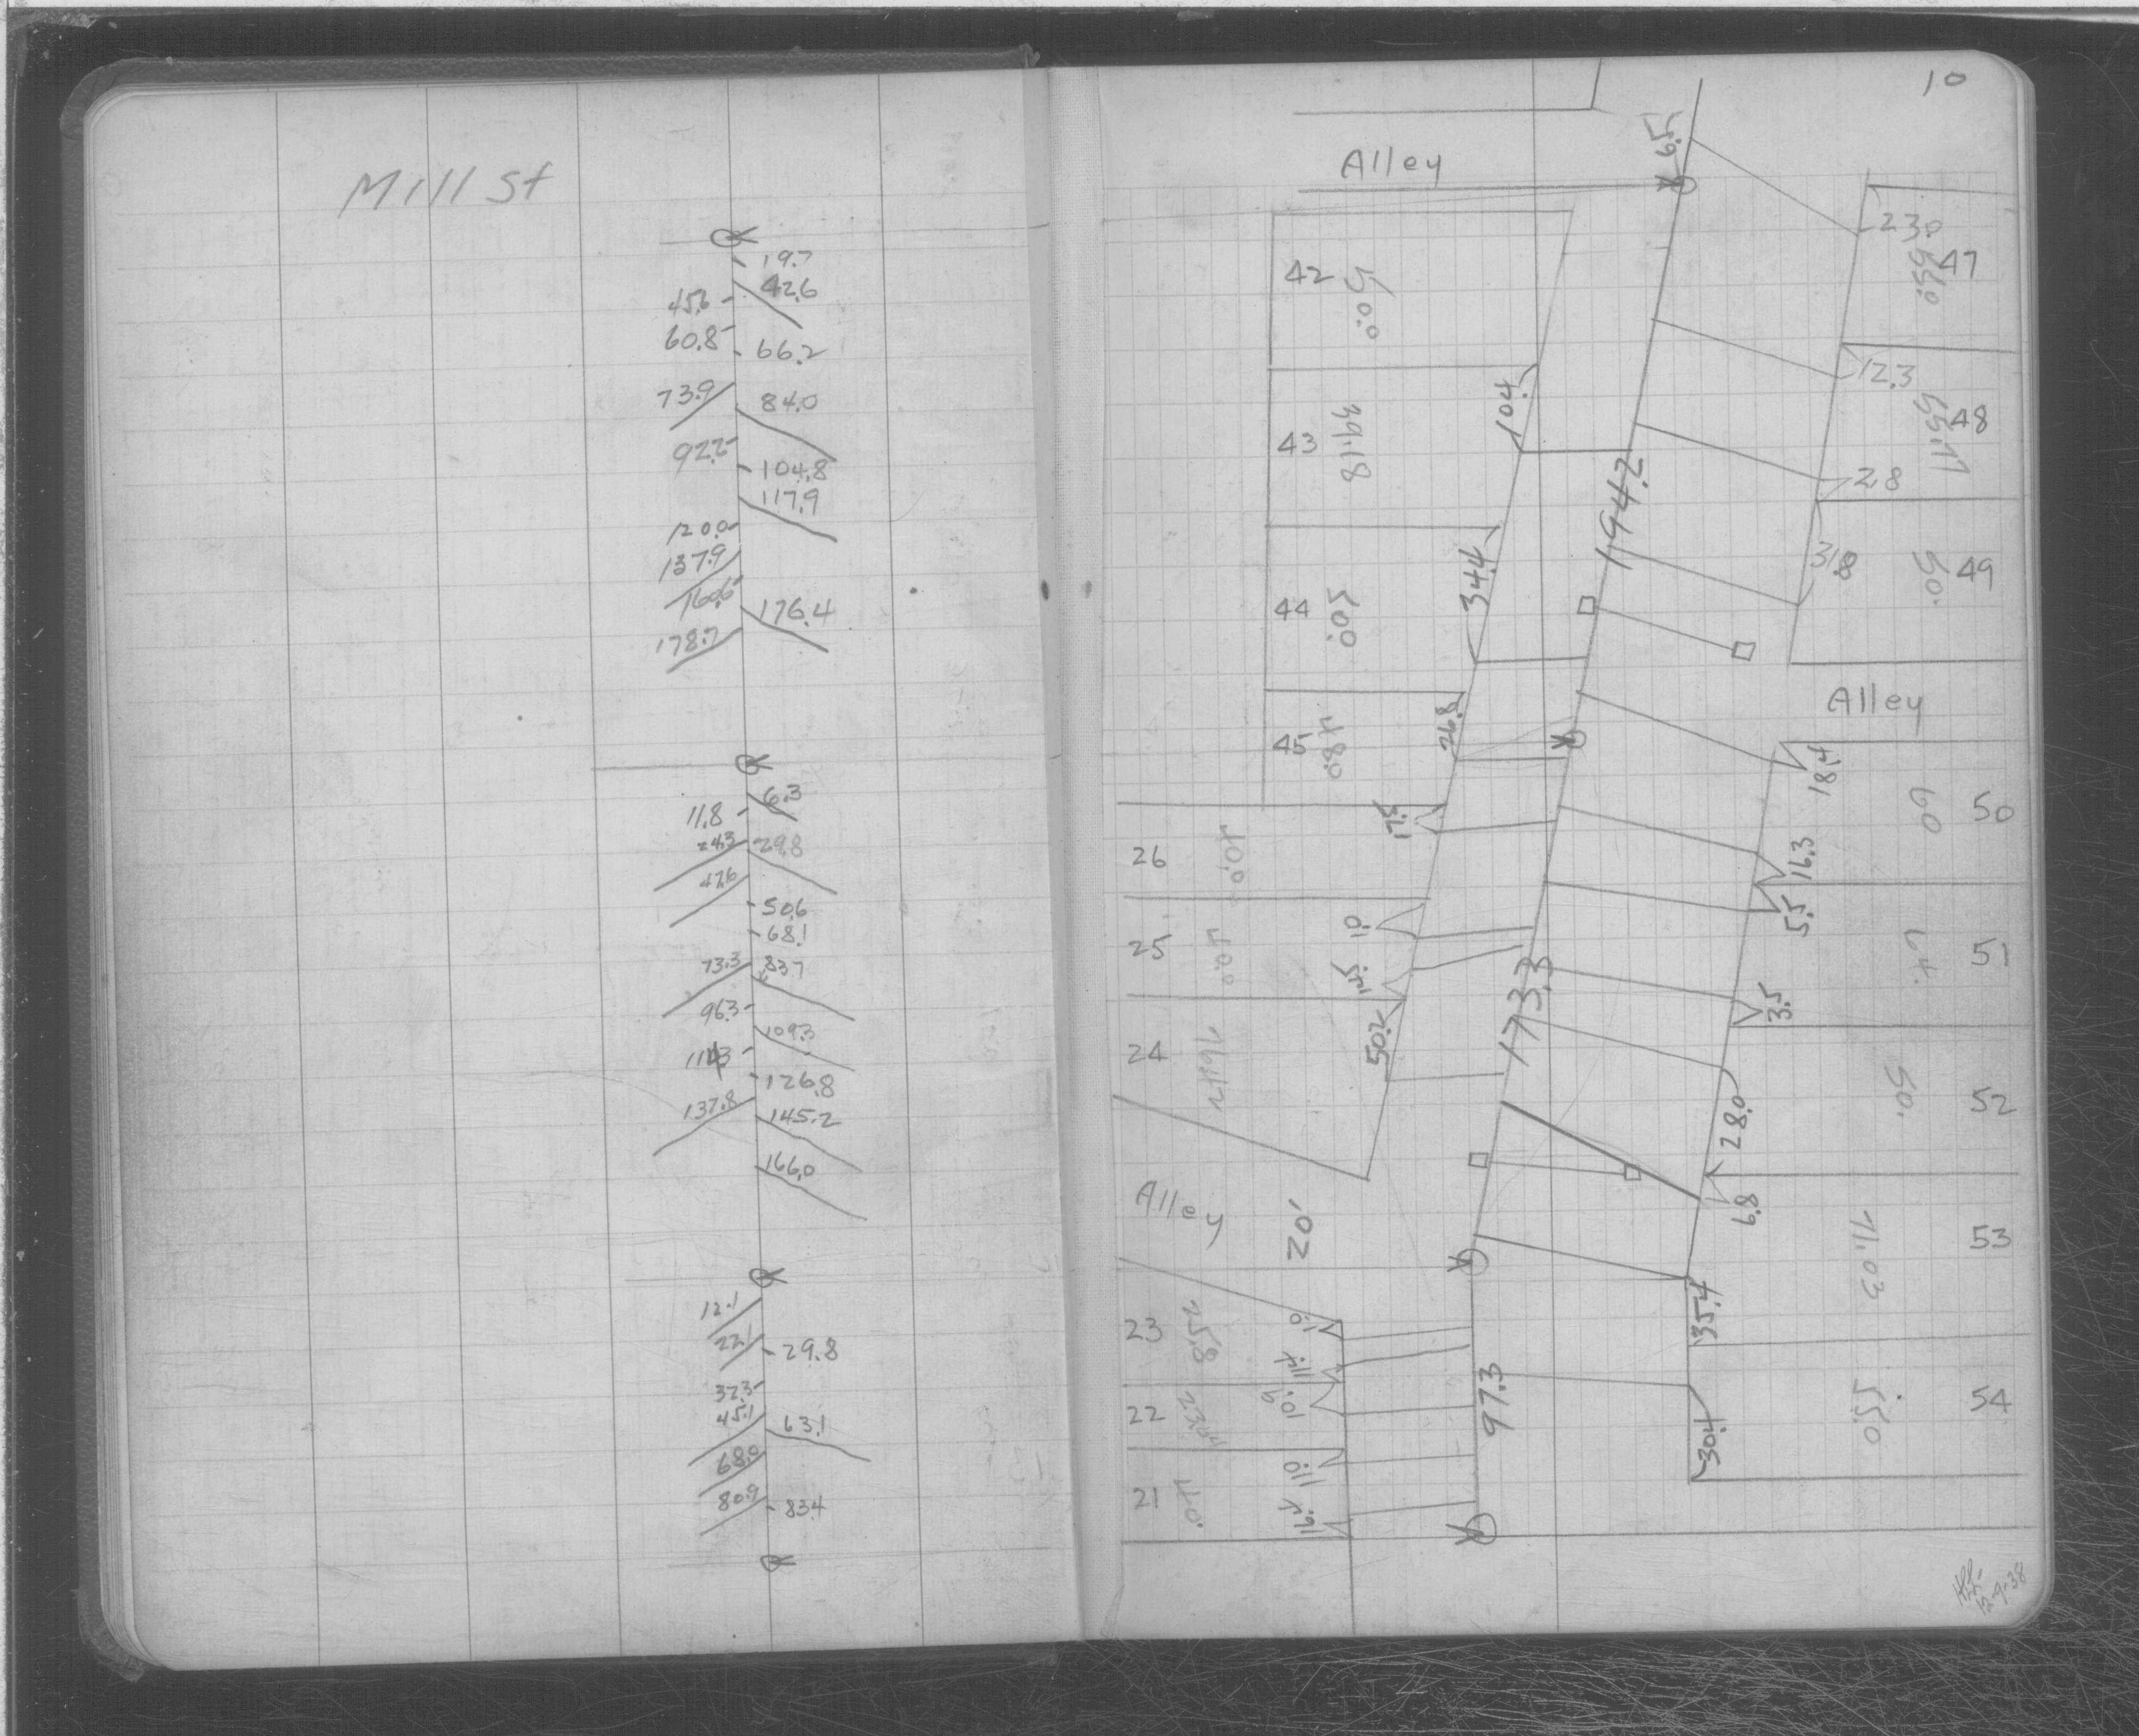 Mill St
19.7
42.6
45.6
60.8
66.2
73.9
84.0
92.2
104.8
117.9
120.0
137.9
160.6
176.4
178.7
6.3
11.8
24.3
29.8
47.6
50.6
68.1
73.3
83.7
96.3
109.3
114.3
126.8
137.8
145.2
166.0
12.1
22.1
29.8
37.3
45.1
63.1
68.0
80.9
83.4
10
6.5
Alley
42
50.0
23.0
47
55.0
10.4
12.3
43
39.18
48
55.11
194.2
2.8
34.4
31.8
44
50.0
49
50.
Alley
26.8
45
48.0
18.4
17.5
50
60
16.3
26
40.0
5.5
1.0
25
40.0
51
64.
14.5
173.3
3.5
50.2
24
76.42
52
50.
28.0
6.8
Alley
20'
53
71.03
35.4
1.0
23
25.8
11.4
10.9
22
97.3
54
55.0
30.4
11.0
21
40.
16.4
12-9-38